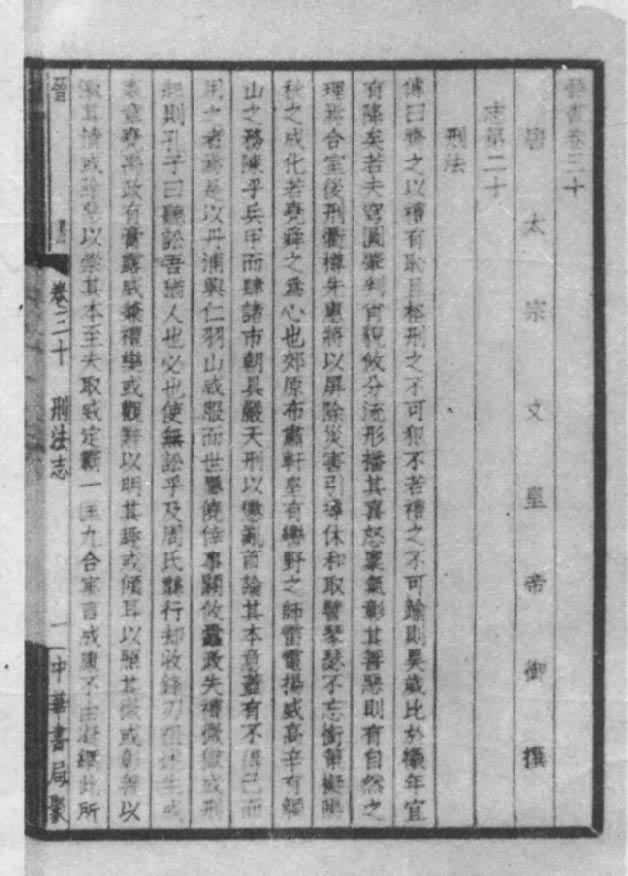 晉書卷三十
唐太宗文皇帝御撰
志第二十
刑法
傳曰齊之以禮有恥且格刑之不可犯不若禮之不可踰則昊歲比於犧年宜
有降矣若夫穹圓肇判宵貌攸分流形播其喜怒稟氣彰其善惡則有自然之
理焉念室後刑衢樽先惠將以屏除災害引導休和取譬琴瑟不忘銜策擬陽
秋之成化若堯舜之爲心也郊原布肅軒皇有轡野之師雷電揚威高辛有觸
山之務陳乎兵甲而肆諸市朝具嚴天刑以懲亂首論其本意蓋有不得已而
用之者焉是以丹浦興仁羽山咸服而世屬僥倖事關攸蠹政失禮微獄成刑
起則孔子曰聽訟吾猶人也必也使無訟乎及周氏龔行却收鋒刃祖述生成
憲章堯禹政有膏露威兼禮樂或觀辭以明其趣或傾耳以照其微或彰善以
激其情或除惡以崇其本至夫取威定霸一匡九合寓言成康不由凝網此所
晉書 卷三十 刑法志 一 中華書局聚